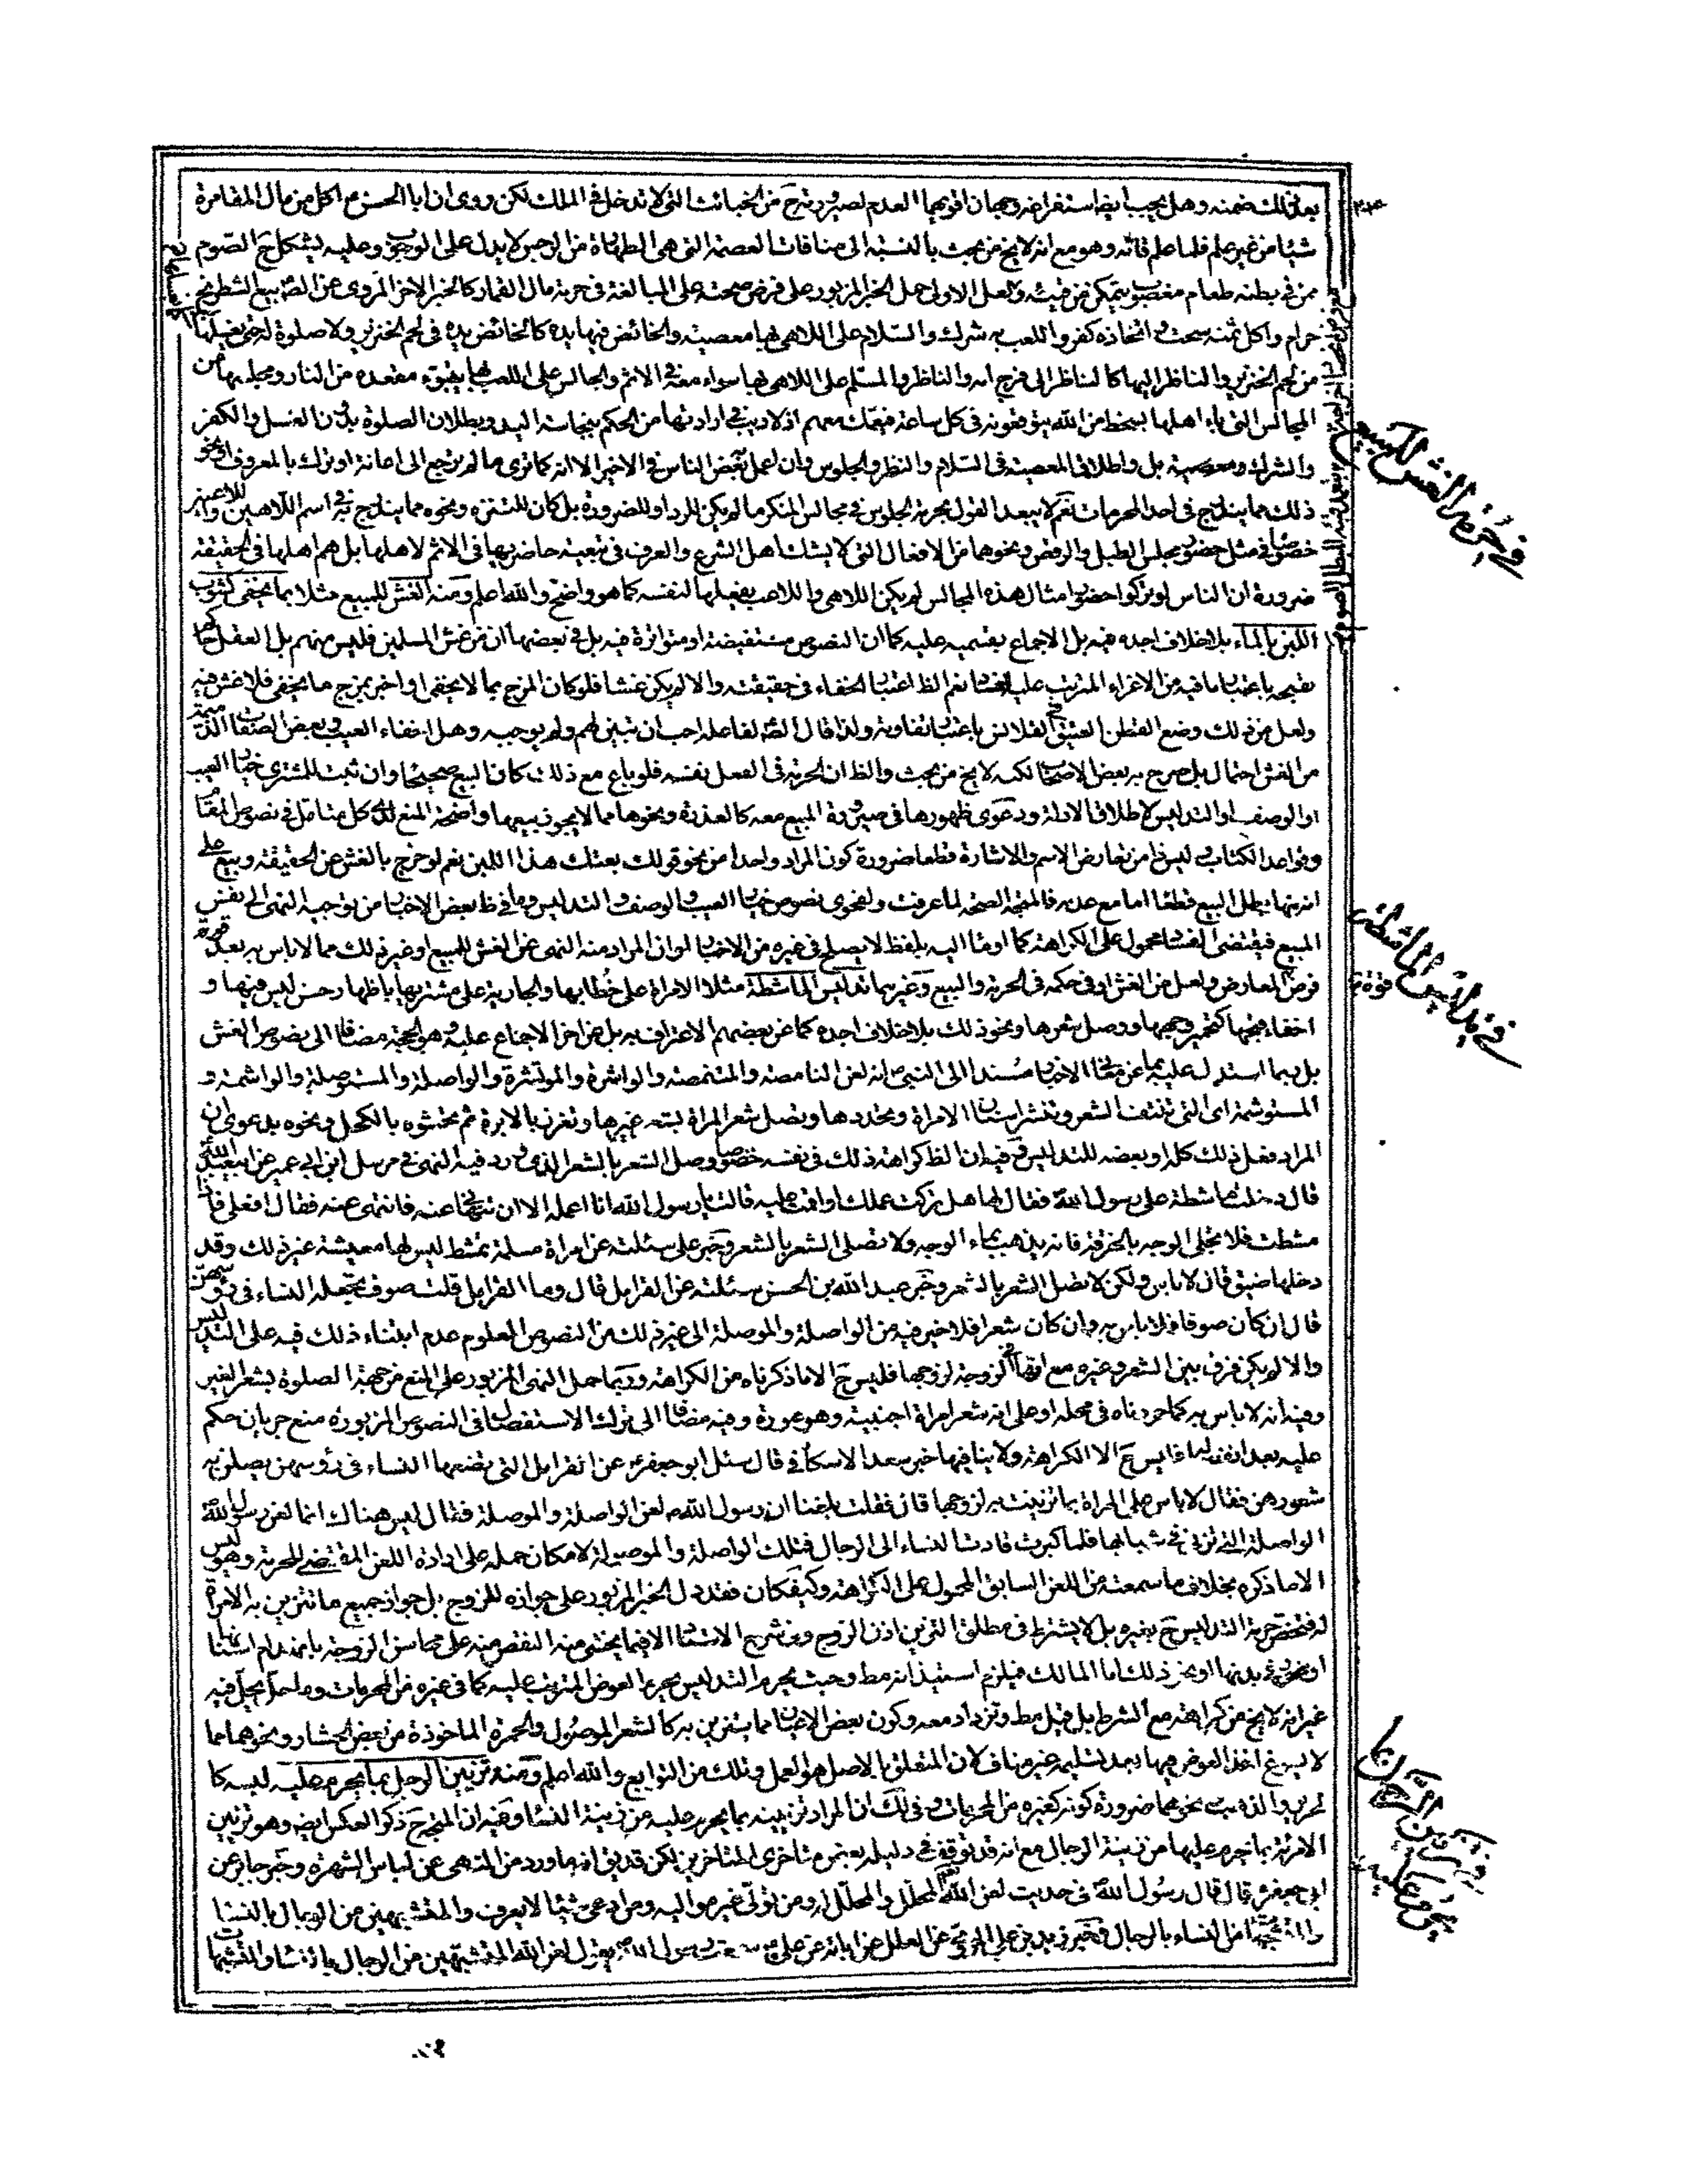 بعد ذلك ضمنه وهل يجب أيضا استفراغه وجهان اقويهما العدم لصيرورته ح من الخبائث التى لا تدخل فى الملك لكن روى ان ابا الحسن ع اكل من مال المقامرة
شيئا من غير علم فلما علم قائه وهو مع انه لا يخ من بحث بالنسبة الى منافات العصمة التى هى الطهارة من الرجس لا يدل على الوجوب وعليه يشكل ح الصوم
ممن فى بطنه طعام مغصوب يتمكن من قيئه ولعل الاولى حمل الخبر المزبور على فرض صحته على المبالغة فى حرمة مال القمار كالخبر الاخر المروى عن الصادق بيع الشطرنج
حرام واكل ثمنه سحت واتخاذه كفر واللعب به شرك والسلام على اللاهى بها معصية والخائض فيها يده كالخائض يده فى لحم الخنزير ولا صلوة له حتى يغسلها
من لحم الخنزير والناظر اليها كالناظر الى فرج امه والناظر والمسلم على اللاهى بها سواء معه فى الاثم والجالس على اللعب بها يتبوء مقعده من النار ومجلسها من
المجالس التى باء اهلها بسخط من الله يتوقعونه فى كل ساعة فيعمك معهم اذ لا ريب فى ارادتها من الحكم بنجاسة اليد وبطلان الصلوة بدون الغسل والكفر
والشرك ومعصية بل واطلاق المعصية فى السلام والنظر والجلوس وان لعمل بعض الناس فى الاخير الا انه كما ترى ما لم يرجع الى اعانة او ترك بالمعروف او نحو
ذلك مما يندرج فى احد المحرمات نعم لا يبعد القول بحرمة الجلوس فى مجالس المنكر ما لم يكن للرد او للضرورة بل كان للتنزه ونحوه مما يندرج به فى اسم اللاهين واللاعبين
خصوصا فى مثل حضور مجلس الطبل والرقص ونحوهما من الافعال التى لا يشك اهل الشرع والعرف فى تبعية حاضريها فى الاثم لاهلها بل هم اهلها فى الحقيقة
ضرورة ان الناس لو تركوا حضور امثال هذه المجالس لم يكن اللاهى واللاعب يفعلها لنفسه كما هو واضح والله اعلم ومنه الغش للمبيع مثلا بما يخفى كشوب
اللبن بالماء بلا خلاف اجده فيه بل الاجماع بقسميه عليه كما ان النصوص مستفيضة او متواترة فيه بل فى بعضها ان من غش المسلمين فليس منهم بل العقل حاكم
بقبحه باعتبار ما فيه من الاغراء المترتب عليه نعم الظ اعتبار الخفاء فى حقيقته والا لم يكن غشا فلو كان المزج بما لا يخفى او اخبر بمزج ما يخفى فلا غش فيه
ولعل من ذلك وضع القطن العتيق فى القلانس باعتبار تفاوته ولذا قال الصادق لفاعله احب ان تبين لهم ولم يوجبه وهل اخفاء العيب وبعض الصفات
من الغش احتمال بل صرح به بعض الاصحاب لكنه لا يخ من بحث والظ ان الحرمة فى الفعل نفسه فلو باع مع ذلك كان البيع صحيحا وان ثبت للمشترى خيار العيب
او الوصف او التدليس لاطلاق الادلة ودعوى ظهورها فى صيرورة المبيع معه كالعذرة ونحوها مما لا يجوز بيعها واضحة المنع لدى كل متامل فى نصوص المقام
وقواعد الكتاب وليس ذا من تعارض الاسم والاشارة قطعا ضرورة كون المراد واحدا من نحو قولك بعتك هذا اللبن نعم لو خرج بالغش عن الحقيقة وبيع على
انه منها بطل البيع قطعا اما مع عدمه فالمتجه الصحة لما عرفت ولفحوى نصوص خيار العيب والوصف والتدليس وما فى ظ بعض الاخبار من توجيه النهى الى نفس
المبيع فيقتضى الفساد محمول على الكراهة كما اومأ اليه بلفظ لا يصلح فى غيره من الاخبار او ان المراد منه النهى عن الغش للمبيع او غير ذلك مما لا باس به بعد قوة
فرض المعارض ولعل من الغش او فى حكمه فى الحرمة والبيع وغيرهما تدليس الماشطة مثلا الامراة على خطابها والجارية على مشتريها باظهار حسن ليس فيها و
اخفاء قبحها كتحمير وجهها ووصل شعرها ونحو ذلك بلا خلاف اجده كما عن بعضهم الاعتراف به بل عن اخر الاجماع عليه وهو الحجة مضافا الى نصوص الغش
بل بما استدل عليه بما عن معانى الاخبار مسندا الى النبى ص انه لعن النامصة والمتنمصة والواشرة والموتشرة والواصلة والمستوصلة والواشمة و
المستوشمة اى التى تنتف الشعر وتشر اسنان الامراة وتحددها وتصل شعر المراة بشعر غيرها وتغرز بالابرة ثم تحشوه بالكحل ونحوه بدعوى ان
المراد فعل ذلك كله او بعضه للتدليس وفيه ان الظ كراهة ذلك فى نفسه خصوصا وصل الشعر بالشعر الذى ورد فيه النهى فى مرسل ابن ابى عمير عن ابيعبد الله
قال دخلت ماشطة على رسول الله فقال لها هل تركت عملك او اقمت عليه قالت يا رسول الله انا اعمله الا ان تنهانى عنه فانتهى عنه فقال افعلى فاذا
مشطت فلا تجلى الوجه بالخرقة فانه يذهب بماء الوجه ولا تصلى الشعر بالشعر وخبر على سئلته عن امراة مسلمة تمشط ليس لها معيشة غير ذلك وقد
دخلها ضيق قال لا باس ولكن لا تصل الشعر بالشعر وخبر عبد الله بن الحسن سئلته عن القرامل قال وما القرامل قلت صوف تجعله النساء فى رؤسهن
قال ان كان صوفا فلا باس به وان كان شعرا فلا خير فيه من الواصلة والموصلة الى غير ذلك من النصوص المعلوم عدم ابتناء ذلك فيه على التدليس
والا لم يكن فرق بين الشعر وغيره مع الزوجة لزوجها فليس ح الا ما ذكرناه من الكراهة وربما حمل النهى المزبور على المنع من جهة الصلوة بشعر الغير
وفيه انه لا باس به كما حررناه فى محله او على انه شعر امراة اجنبية وهو عورة وفيه مضافا الى ترك الاستفصال فى النصوص المزبورة منع جريان حكم
عليه بعد انفصاله فليس ح الا الكراهة ولا ينافيها خبر سعد الاسكاف قال سئل ابو جعفر ع عن القرامل التى تضعها النساء فى رؤسهن يصلونه
شعورهن فقال لا باس على المراة بما تزينت به لزوجها قال فقلت بلغنا ان رسول الله ص لعن الواصلة والموصلة فقال ليس هناك انما لعن رسول الله
الواصلة التى تزنى فى شبابها فلما كبرت قادت النساء الى الرجال فتلك الواصلة والموصولة لامكان حمله على ارادة اللعن المقتضى للحرمة وهو ليس
الا ما ذكره بخلاف ما سمعته من اللعن السابق المحمول على الكراهة وكيف كان فقد دل الخبر المزبور على جوازه للزوج بل جواز جميع ما تتزين به الامراة
له فتختص حرمة التدليس ح بغيره بل لا يشترط فى مطلق التزين اذن الزوج الا فيما يخشى منه النقص منه على محاسن الزوجة
او نحو بدنها او نحو ذلك اما المالك فيلزم استيذانه مط وحيث يحرم التدليس يحرم العوض المترتب عليه كما فى غيره من المحرمات
غير انه لا يخ من كراهة مع الشرط بل قيل مط وتزداد معه وكون بعض الاعيان مما يتزين به كالشعر الموصول والحمرة الماخوذة من بعض ونحوهما مما
لا يسوغ اخذ العوض بعد تسليمه غير مناف لان المتعلق بالاصل هو العمل وتلك من التوابع والله اعلم ومنه تزيين الرجل بما يحرم عليه لبسه كا
لحرير والذهب نحوهما ضرورة كونه كغيره من المحرمات وفى لك ان المراد تزيينه بما يحرم عليه من زينة النساء وفيه ان المتجه ح ذكر العكس ايضه وهو تزيين
الامراة بما حرم عليها من زينة الرجال مع انه قد توقف فى دليله بعض متاخرى المتاخرين لكن قد يق انه ما ورد من النهى عن لباس الشهرة وخبر جابر عن
ابى جعفر ع قال قال رسول الله فى حديث لعن الله المحلل والمحلل له ومن تولى غير مواليه ومن ادعى نسبا لا يعرف والمتشبهين من الرجال بالنساء
والمتشبهات من النساء بالرجال وخبر زيد بن على المروى عن العلل عن ابائه عن على ع سمعت رسول الله ص يقول لعن الله المتشبهين من الرجال بالنساء والمتشبهات
فى حرمة الغش للمبيع
فى تدليس الماشطة
فى تزيين الرجل بما يحرم عليه